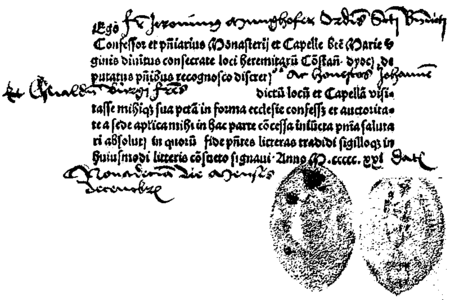 Ego fr Jeronimus Munghofer Ordis Scti
Confessor et pñiarius Monasterij et Capelle btẽ Marie v
ginis diuinitus consecrate loci heremitarũ Cõstañ dyoc de
putatus pñibus recognosco discret Ac honestos Johannẽ
Et Oswaldũ Burgi frẽs dictũ locũ et Capellã visi
tasse mihiq; sua pctã in forma ecclesie confessz et auctorita
te a sede aplica mihi in hac parte cõcessa iniuncta pñia saluta
ri absoluti in quorũ fide pñtes litteras tradidi sigilloq; in
huiusmodi litteris cõsueto signaui Anno M.ccccc.xxi dat
Nonadecima die Mensis
decembre